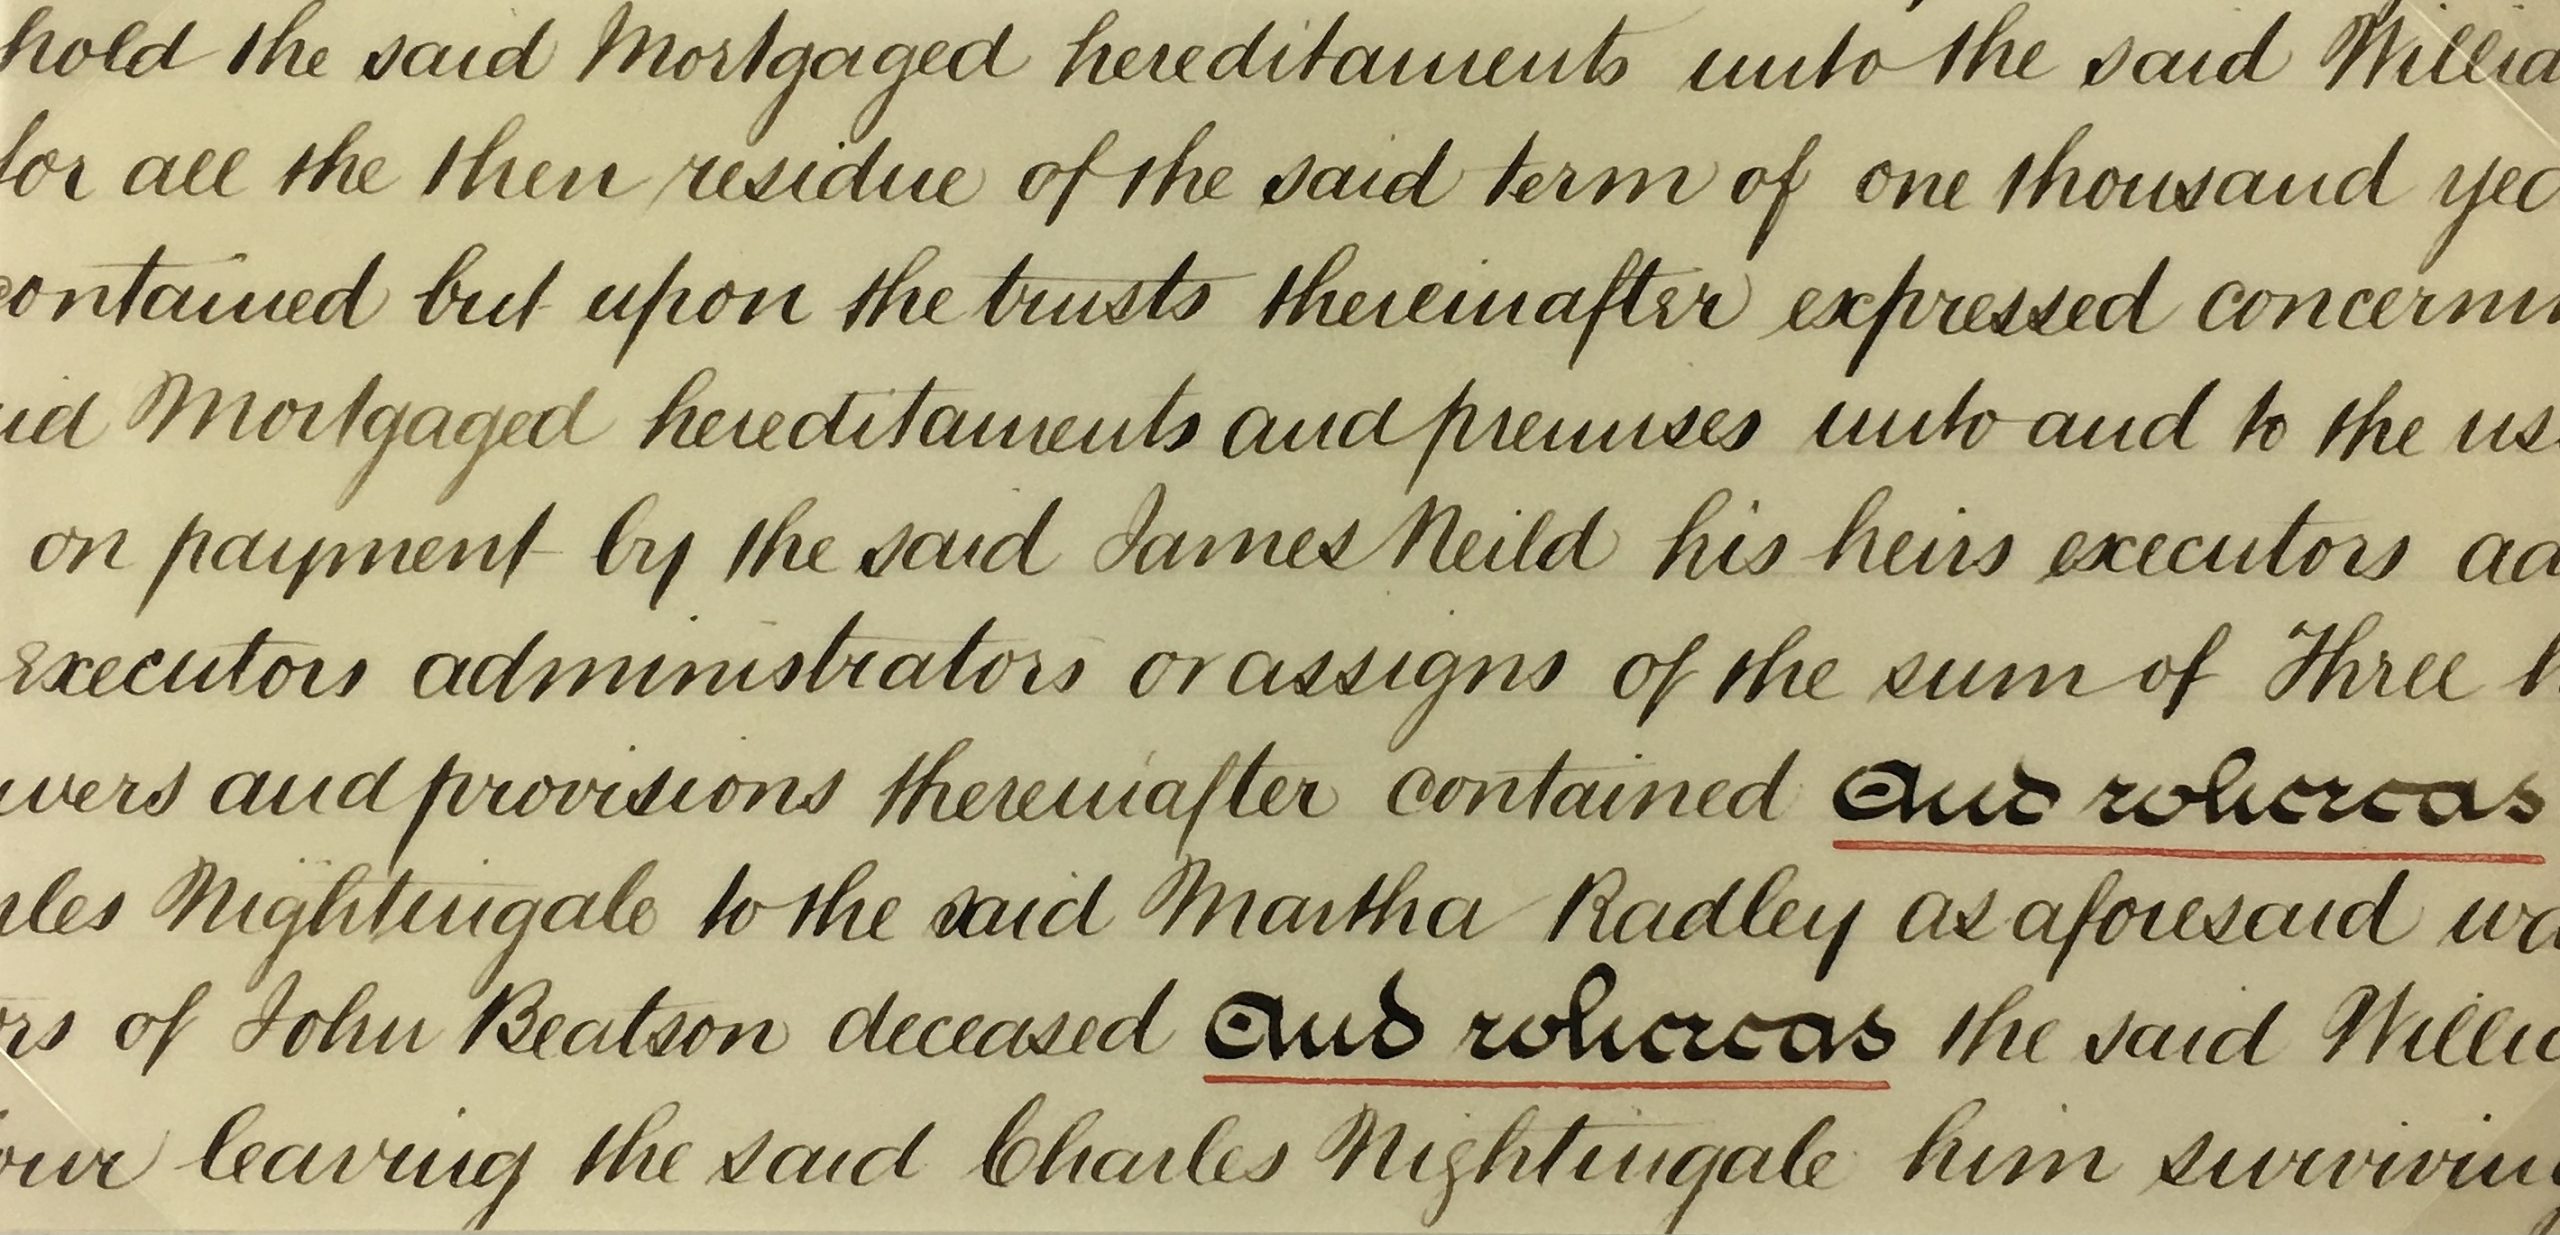 hold the said Mortgaged hereditaments unto the said Willia
for all the then residue of the said term of one thousand yea
contained but upon the trusts thereinafter expressed concernin
id Mortgaged hereditaments and premises unto and to the us
on payment by the said James Neild his heirs executors ad
executors administrators or assigns of the sum of Three h
wers and provisions thereinafter contained And whereas
rles Nightingale to the said Martha Radley as aforesaid wa
ors of John Beatson deceased And whereas the said Willia
our leaving the said Charles Nightingale him surviving